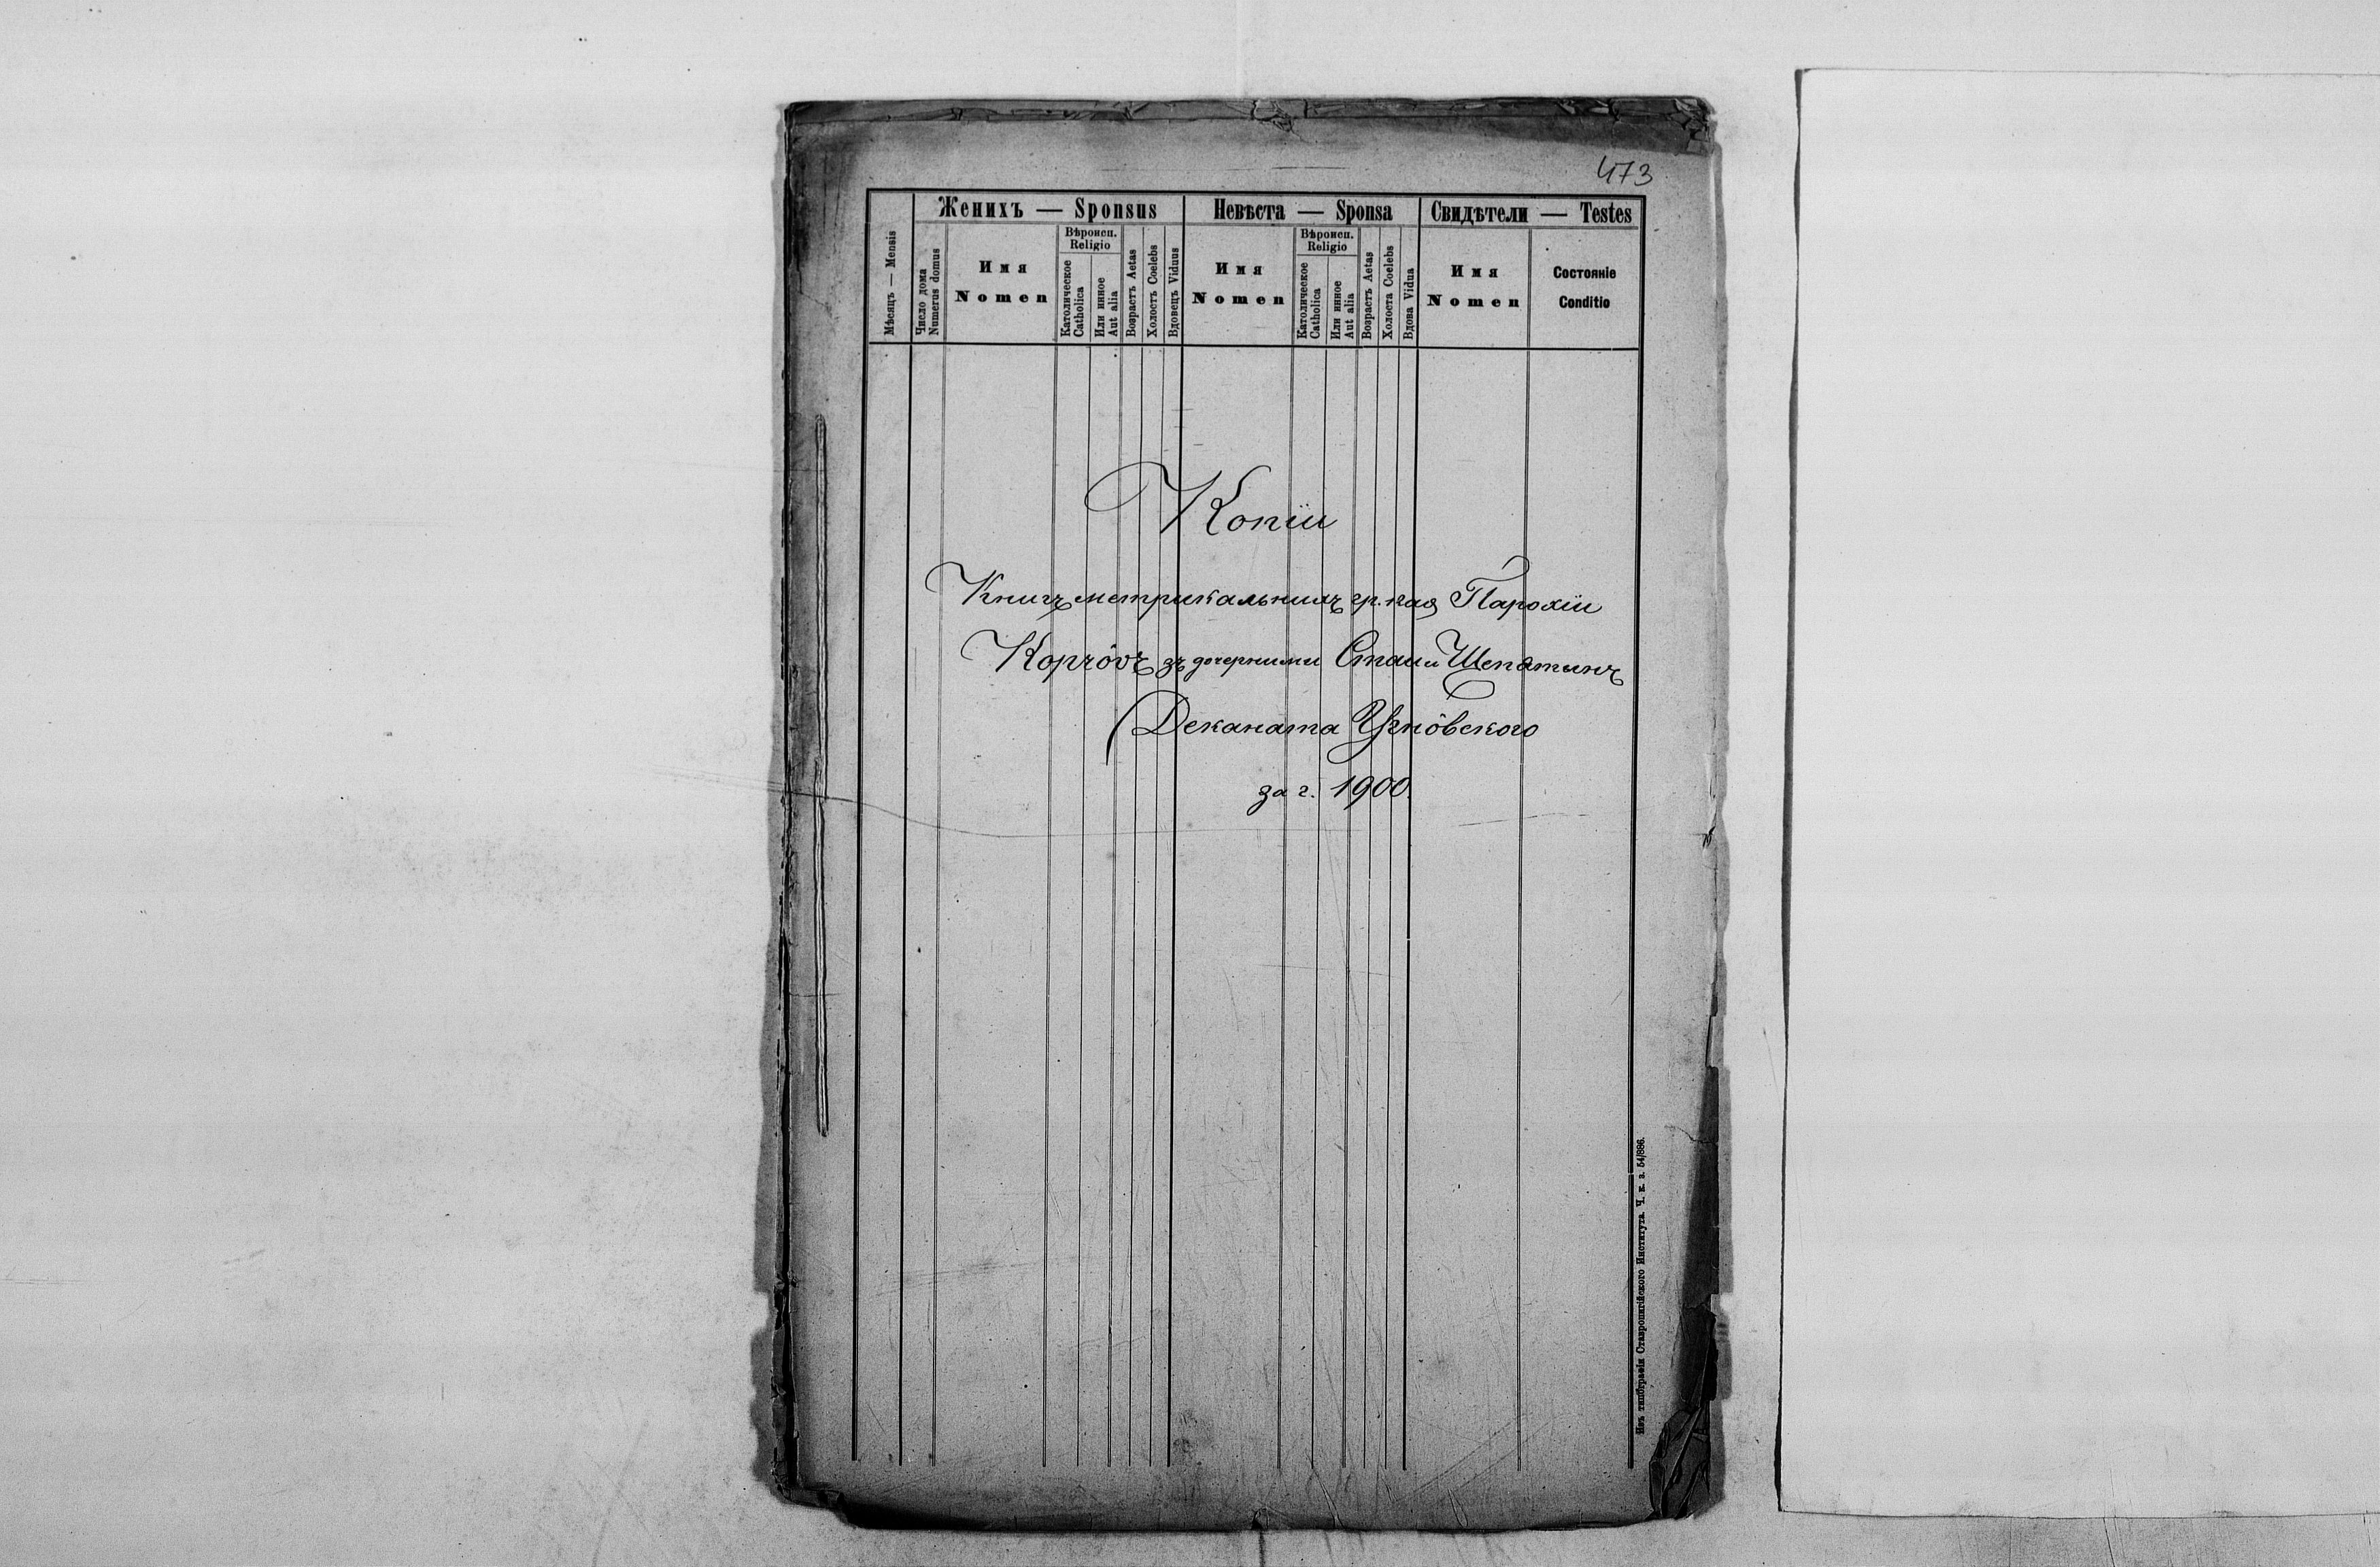 473
Женихъ — Sponsus
Невѣста — Sponsa
Свидѣтели — Testes
Мѣсяцъ — Mensis
Число дома
Numerus domus
Имя
Nomen
Вѣроисп.
Religio
Католическое
Catholica
Или инное
Aut alia
Возрастъ Aetas
Холостъ Coelebs
Вдовецъ Viduus
Имя
Nomen
Вѣроисп.
Religio
Католическое
Catholica
Или инное
Aut alia
Возрастъ Aetas
Холоста Coelebs
Вдова Vidua
Имя
Nomen
Состояніе
Conditio
Копіи
Книгъ метрикальнихъ гр. каѳ Парохіи
Корчôвъ зъ дочерними Стаи и Щепятинъ
Деканата Угнôвского
за г. 1900.
Изъ типографіи Ставропигійского Института. Ч. к. з. 54/886.